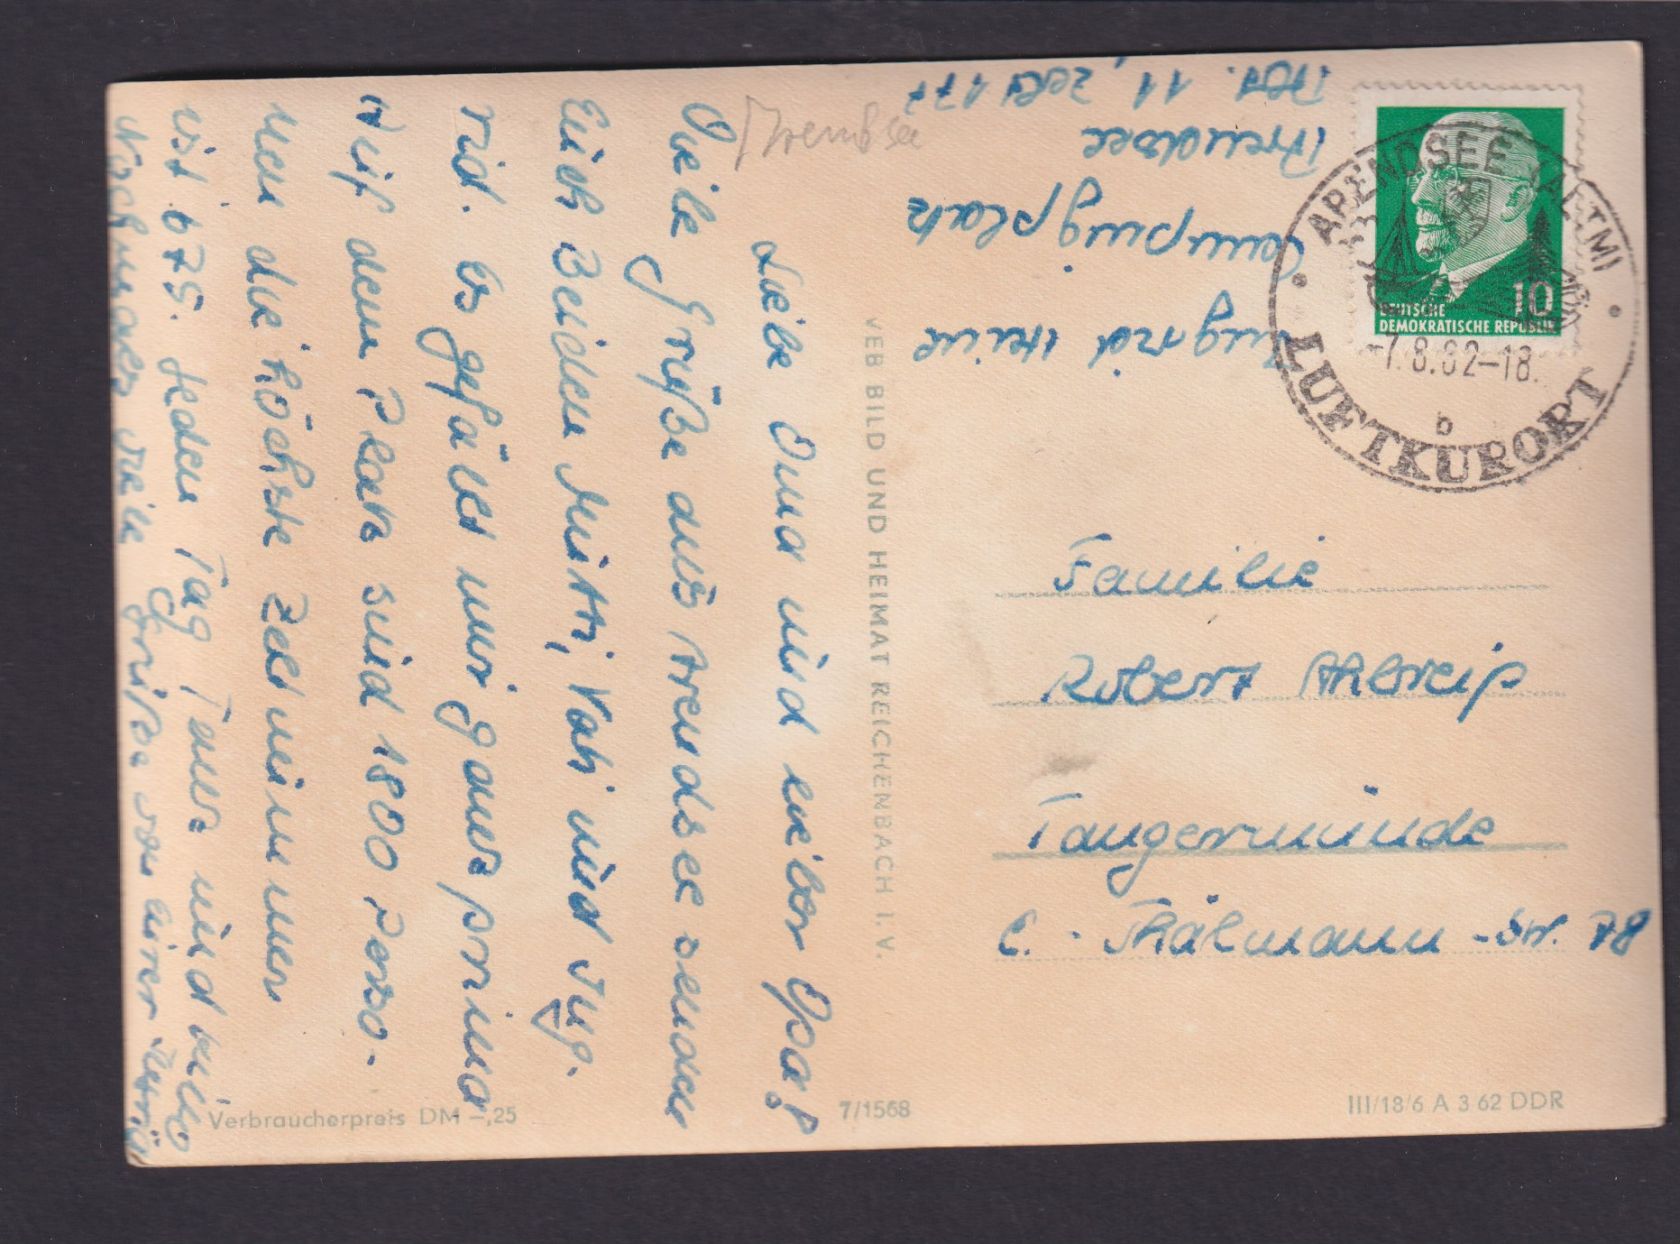 Liebe Oma und lieber Opa!
Viele Grüße aus Arendsee sendet
Euch Beiden Mutti, Vati und Ing-
rid. Es gefällt mir ganz prima
Auf dem Platz sind 1800 Perso-
nen die höchste Zeltnummer
ist 675. Jeden Tag Tanz und Kino
Nochmals viele Grüße von Eurer
Arendsee
Ingrid
Campingplatz
Arendsee
Abt. 11, Zelt 177
ARENDSEE (ALTM)
-7.8.62-18
b
LUFTKURORT
10
DEUTSCHE
DEMOKRATISCHE REPUBLIK
VEB BILD UND HEIMAT REICHENBACH I. V.
Familie
Robert
Tangermünde
E.-Thälmann-Str. 78
Verbraucherpreis DM -,25
7/1568
III/18/6 A 3 62 DDR